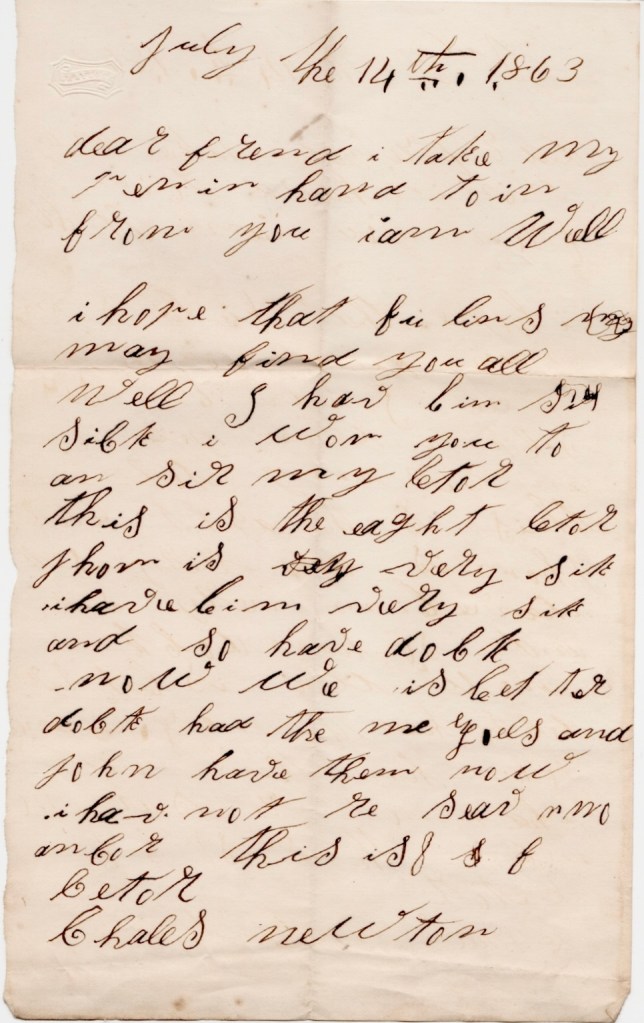 July the 14th. 1863
dear frend i take my
pen in hand to in
from you iam Well
i hope that fu lins
may find you all
Well I hav bim
sick i Wom you to
an sir my letor
this is the eaght letor
jhom is very sik
ihave bim very sik
and so have dolk
now We is bet ter
dolk had the me yels and
john have them now
i hav not re seav nno
an lor this is
letor
Chales newton